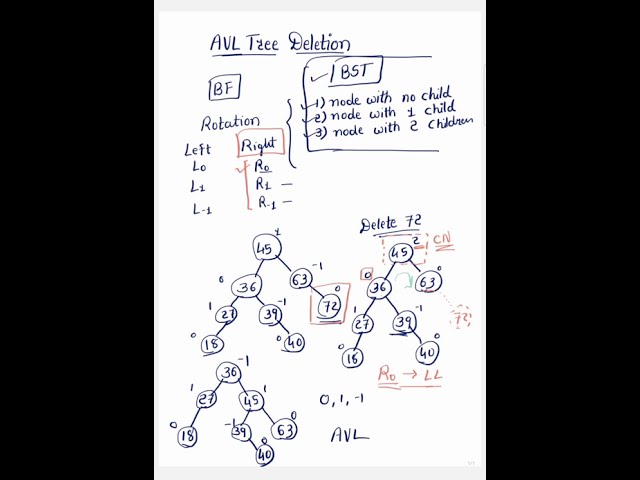 AVL Tree Deletion
BST
BF
1) node with no child
2) node with 1 child
3) node with 2 children
Rotation
Left Right
L0 R0
L1 R1 —
L-1 R-1 —
Delete 72
45 1
63 -1
36 0
72 0
27 1
39 -1
18 0
40 0
45 2 CN
36 0
63 0
72
27 1
39 -1
18 0
40 0
R0 → LL
36 -1
27 1
45 1
18 0
39 -1
63 0
40 0
0, 1, -1
AVL